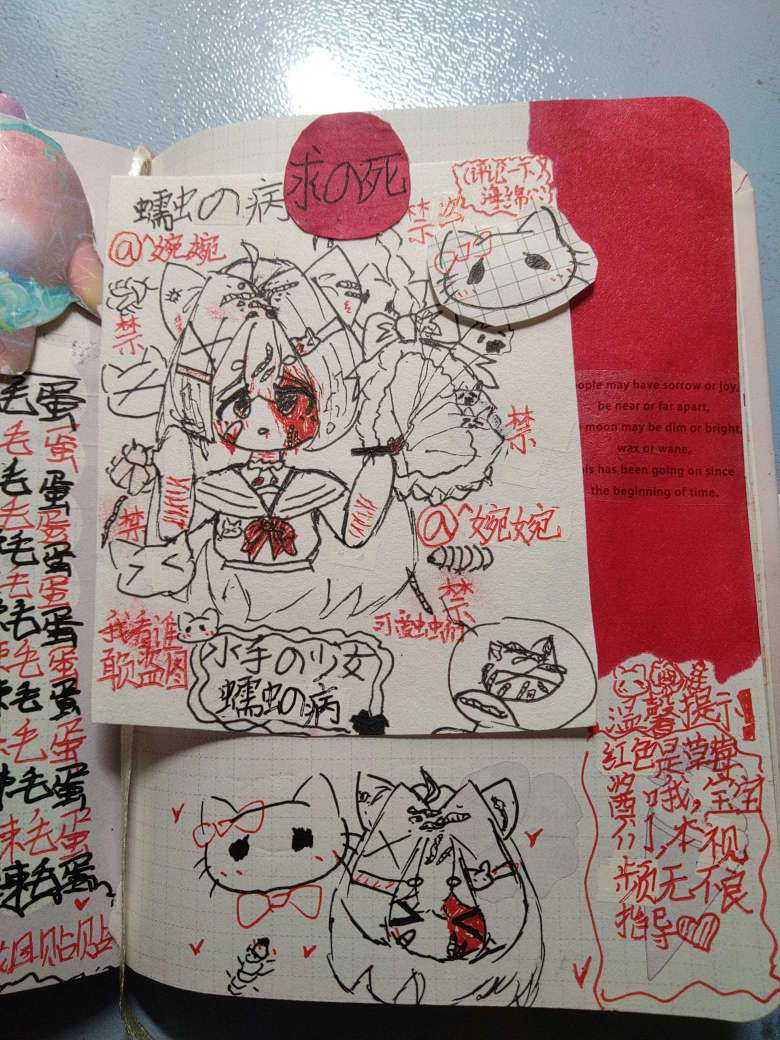 蠕虫の病
求の死
@^婉婉
禁
禁
禁
禁
@^婉婉
禁
我看谁
敢盗图
可爱虫虫们
水手の少女
蠕虫の病
ople may have sorrow or joy,
be near or far apart,
moon may be dim or bright,
wax or wane,
is has been going on since
the beginning of time.
温馨提示!
红色是草莓
酱哦,宝宝
们,本视
频无不良
指导
毛蛋
毛蛋
毛蛋
毛蛋
毛蛋
毛蛋
毛蛋
毛蛋
毛蛋
毛蛋
束毛蛋
束毛蛋
束毛蛋
贴贴